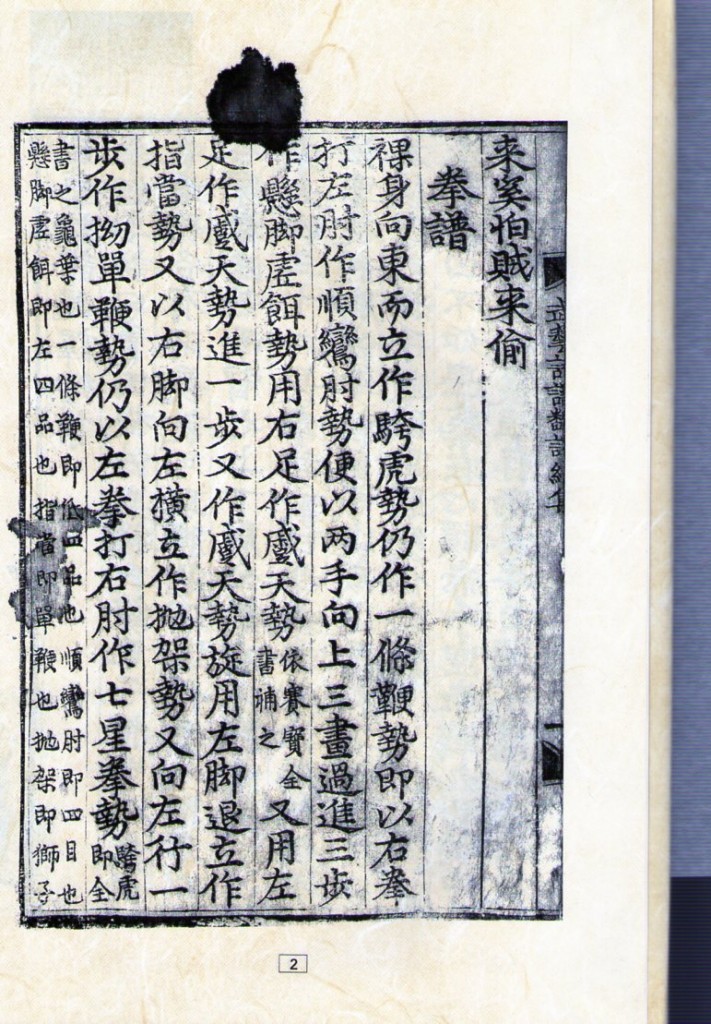 来奚怕賊来偷
拳譜
裸身向東而立作騎虎勢仍作一條鞭勢即以右拳
打左肘作順鸞肘勢便以两手向上三畫過進三步
作懸脚虛餌勢用右足作天勢依賽寶全書補之又用左
足作天勢進一步又作天勢旋用左脚退立作
指當勢又以右脚向左横立作抛架勢又向左行一
步作拗單鞭勢仍以左拳打右肘作七星拳勢騎虎即全
書之龜葉也一條鞭即低四品也順鸞肘即四目也
懸脚虛餌即左四品也指當即單鞭也抛架即獅子
2